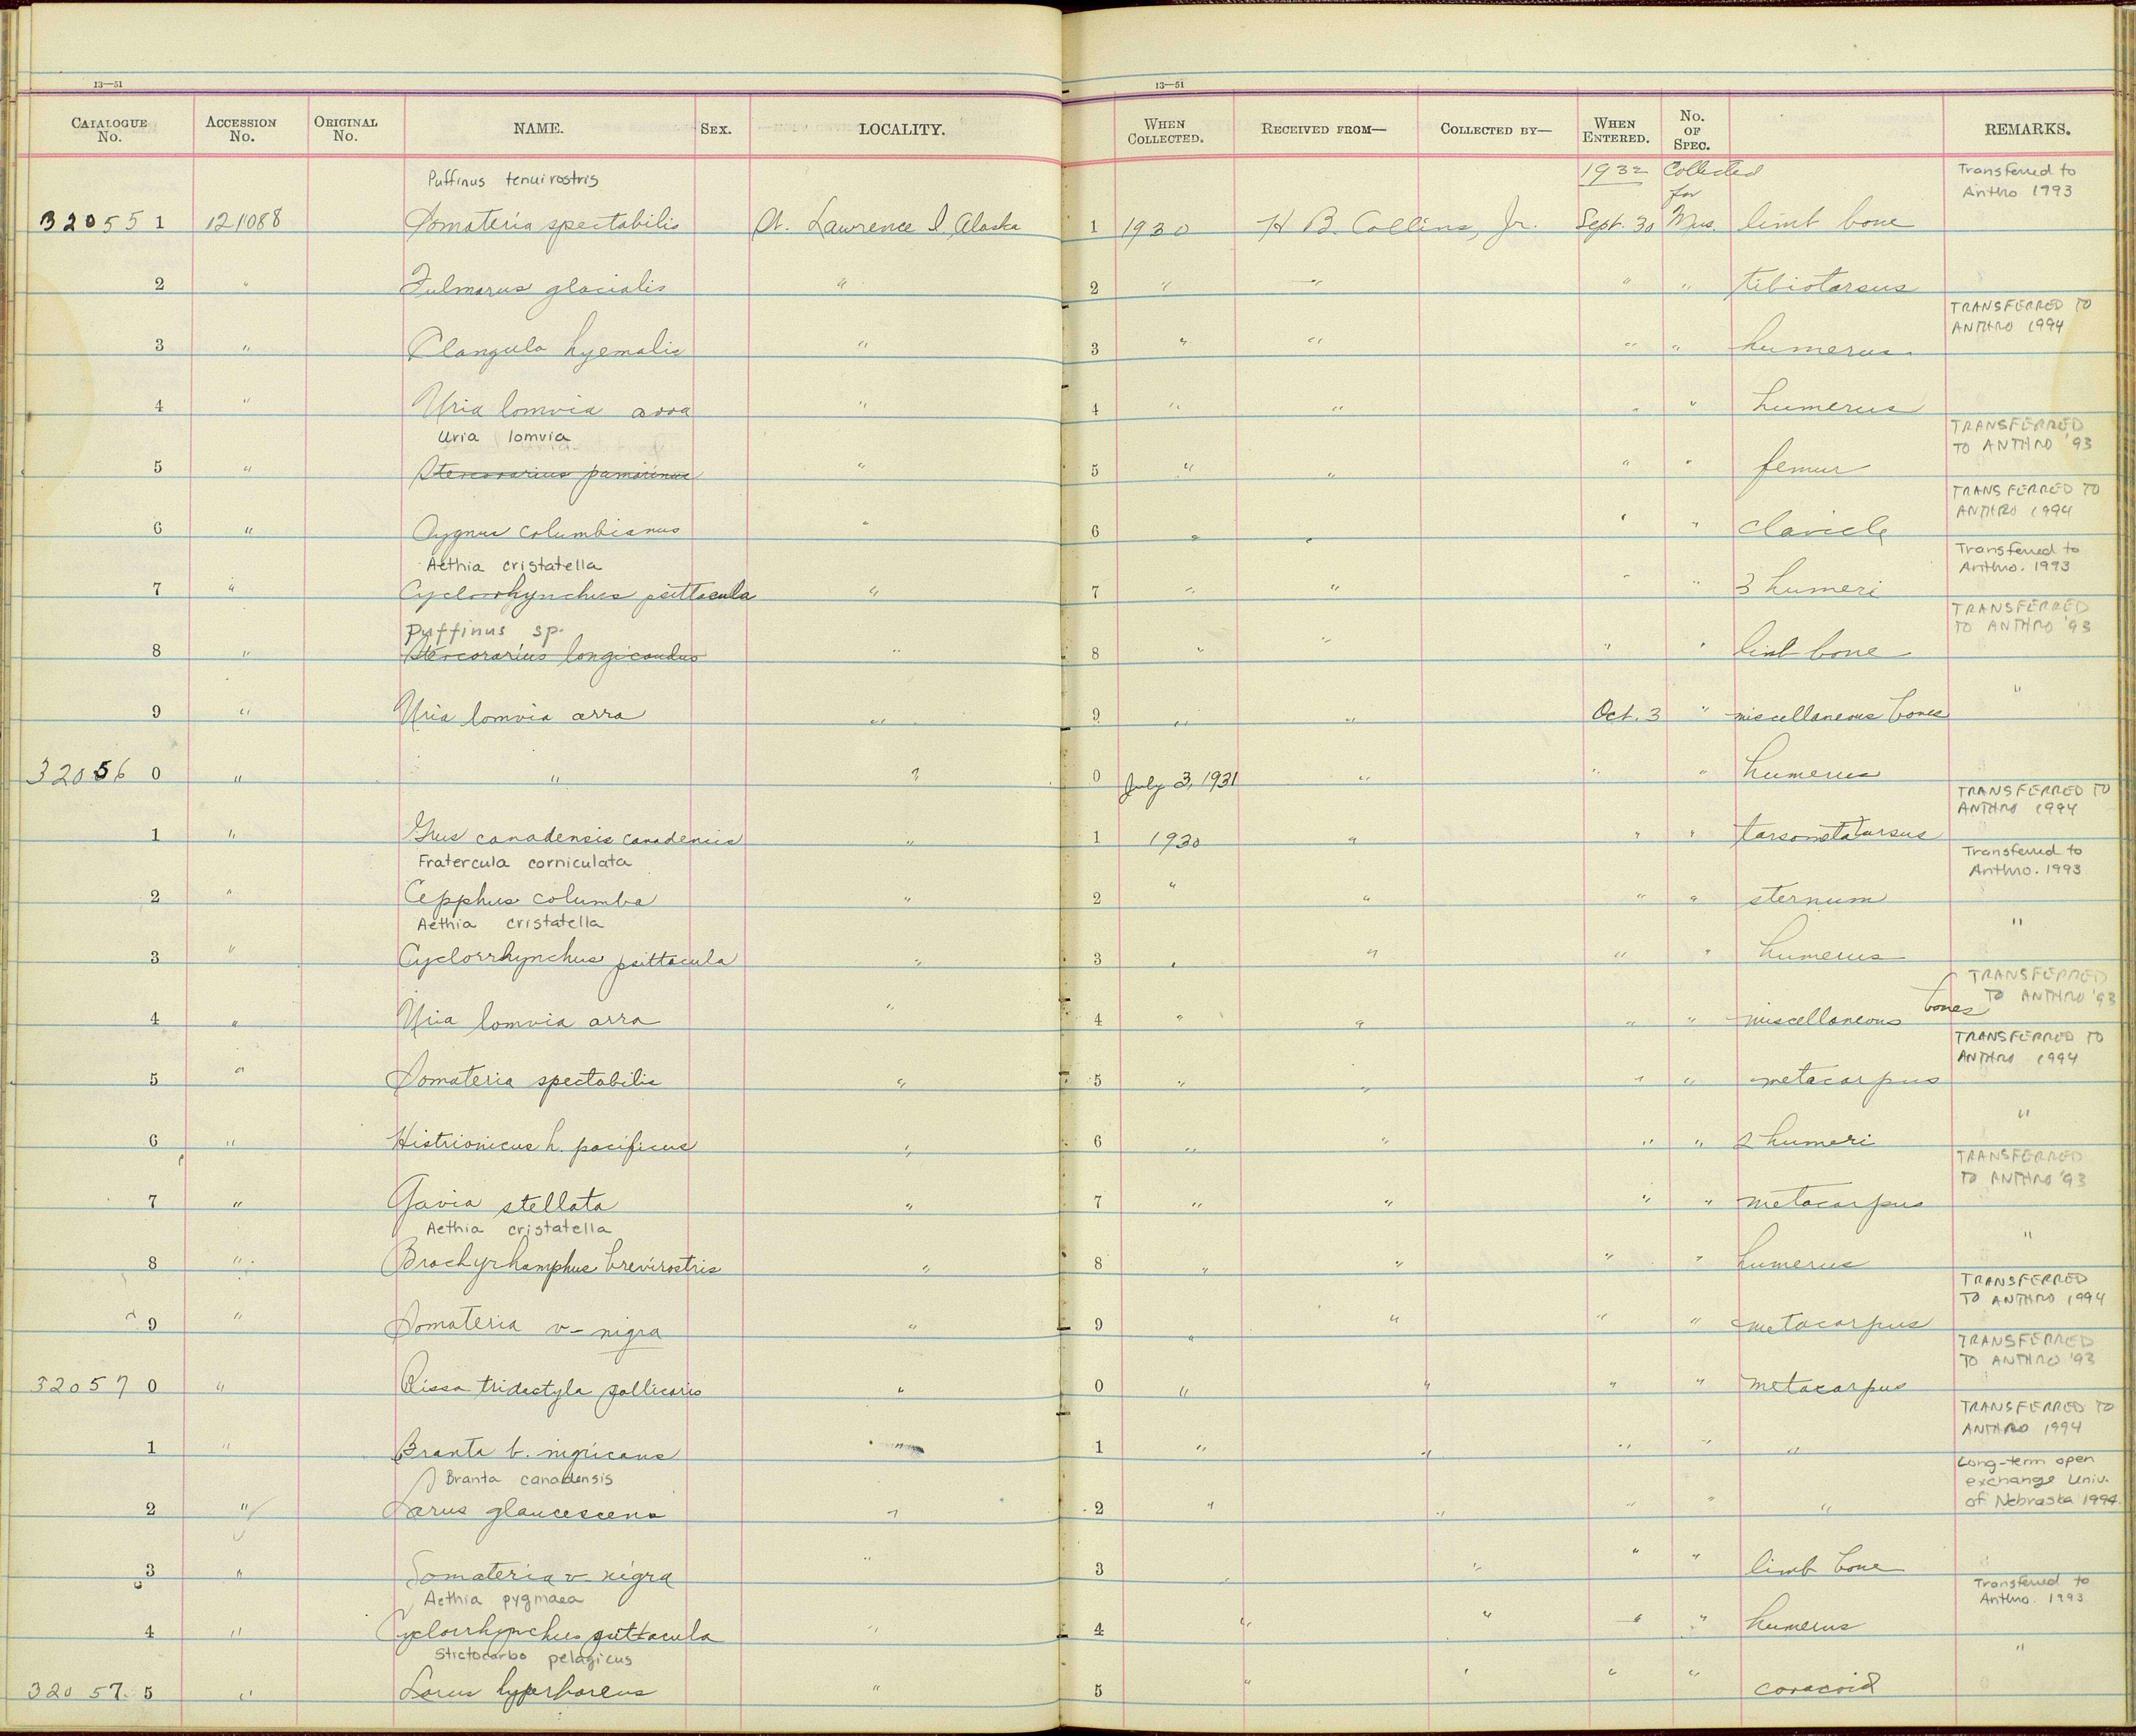 13—51 13—51
CATALOGUE No. ACCESSION No. ORIGINAL No. NAME. SEX. LOCALITY. WHEN COLLECTED. RECEIVED FROM— COLLECTED BY— WHEN ENTERED. No. OF SPEC. REMARKS.
Puffinus tenuirostris 1932 Collected for Transferred to Anthro 1993
320551 121088 Somateria spectabilis St. Lawrence I Alaska 1 1930 H B. Collins, Jr. Sept. 30 Mus. limb bone
2 " Fulmarus glacialis " 2 " " " " tibiotarsus
TRANSFERRED TO ANTHRO 1994
3 " Clangula hyemalis " 3 " " " " humerus
4 " Uria lomvia arra " 4 " " " " humerus
Uria lomvia TRANSFERRED TO ANTHRO '93
5 " Stercorarius pomarinus " 5 " " " " femur
TRANSFERRED TO ANTHRO 1994
6 " Cygnus columbianus " 6 " " " " clavicle
Aethia cristatella Transferred to Anthro. 1993
7 " Cyclorrhynchus psittacula " 7 " " " " 3 humeri
Puffinus sp. TRANSFERRED TO ANTHRO '93
8 " Stercorarius longicaudus " 8 " " " " limb bone
9 " Uria lomvia arra " 9 " " Oct. 3 " miscellaneous bones "
320560 " " " 0 July 3, 1931 " " " humerus
TRANSFERRED TO ANTHRO 1994
1 " Grus canadensis canadensis " 1 1930 " " " tarsometatarsus
Fratercula corniculata Transferred to Anthro. 1993
2 " Cepphus columba " 2 " " " " sternum
Aethia cristatella "
3 " Cyclorrhynchus psittacula " 3 " " " " humerus
TRANSFERRED TO ANTHRO '93
4 " Uria lomvia arra " 4 " " " " miscellaneous bones
TRANSFERRED TO ANTHRO 1994
5 " Somateria spectabilis " 5 " " " " metacarpus
6 " Histrionicus h. pacificus " 6 " " " " 2 humeri "
TRANSFERRED TO ANTHRO '93
7 " Gavia stellata " 7 " " " " metacarpus
Aethia cristatella "
8 " Brachyrhamphus brevirostris " 8 " " " " humerus
TRANSFERRED TO ANTHRO 1994
9 " Somateria v-nigra " 9 " " " " metacarpus
TRANSFERRED TO ANTHRO '93
320570 " Rissa tridactyla pollicaris " 0 " " " " metacarpus
TRANSFERRED TO ANTHRO 1994
1 " Branta b. nigricans " 1 " " " " "
Branta canadensis Long-term open exchange Univ. of Nebraska 1994
2 " Larus glaucescens " 2 " " " " "
3 " Somateria v-nigra " 3 " " " " limb bone
Aethia pygmaea Transferred to Anthro. 1993
4 " Cyclorrhynchus psittacula " 4 " " " " humerus
Stictocarbo pelagicus "
320575 " Larus hyperboreus " 5 " " " " coracoid